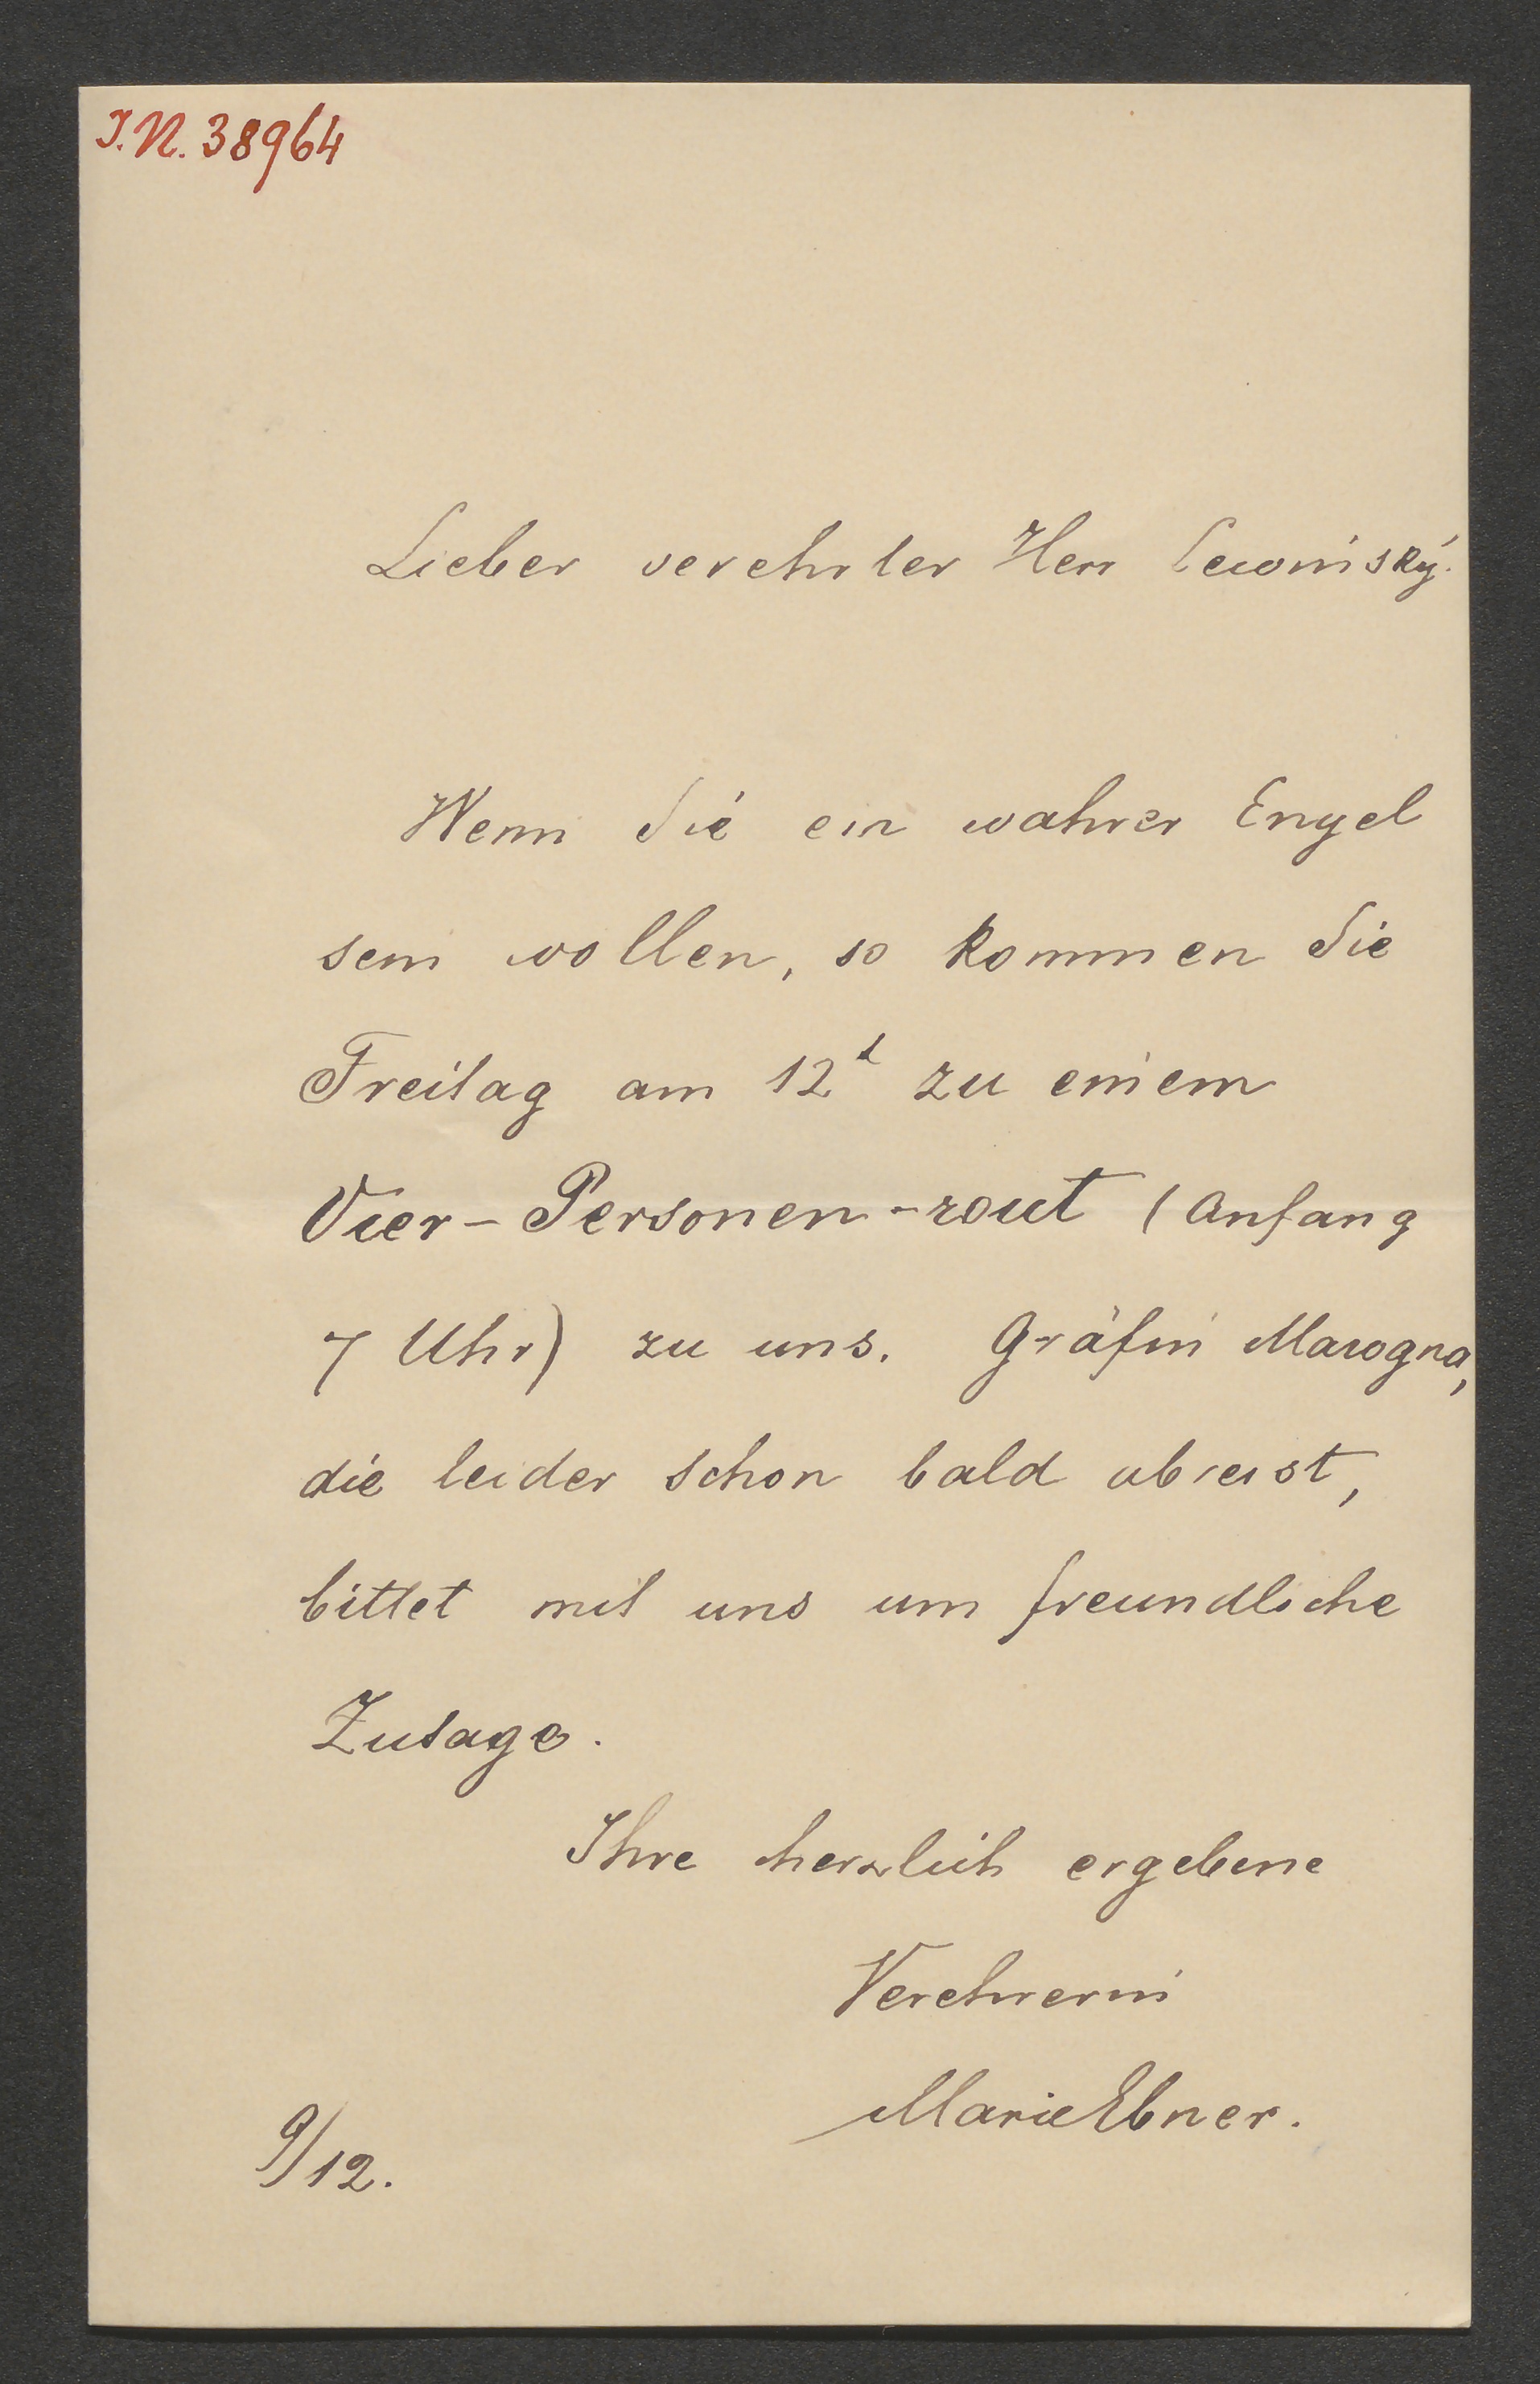 I.N. 38964
Lieber verehrter Herr Lewinsky.
Wenn Sie ein wahrer Engel
sein wollen, so kommen Sie
Freitag am 12t zu einem
Vier-Personen-rout (Anfang
7 Uhr) zu uns. Gräfin Marogna,
die leider schon bald abreist,
bittet mit uns um freundliche
Zusage.
Ihre herzlich ergebene
Verehrerin
Marie Ebner.
9/12.